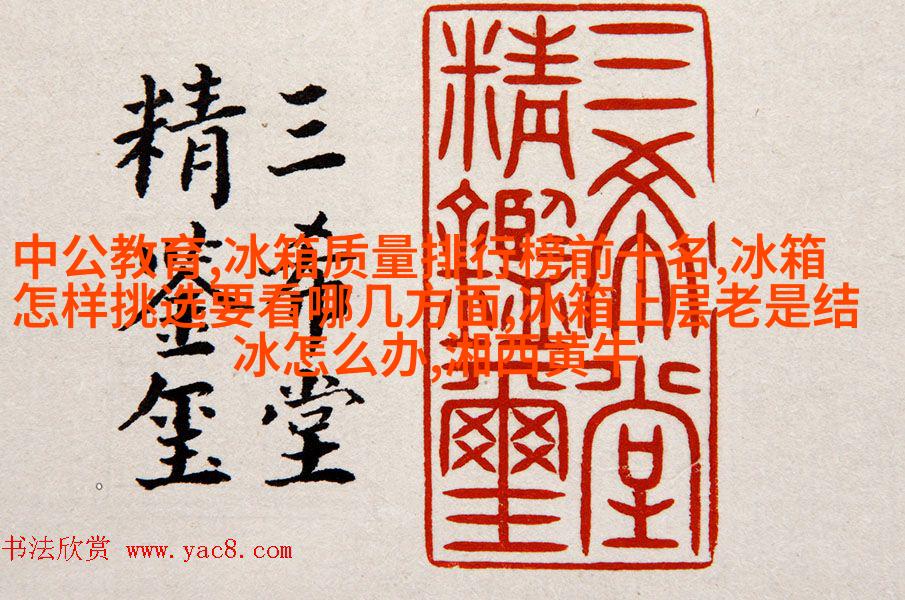 三希堂
精鑑璽
三希堂
精鉴玺
中公教育,冰箱质量排行榜前十名,冰箱
怎样挑选要看哪几方面,冰箱上层老是结
冰怎么办,湘西黄牛
书法欣赏 www.yac8.com